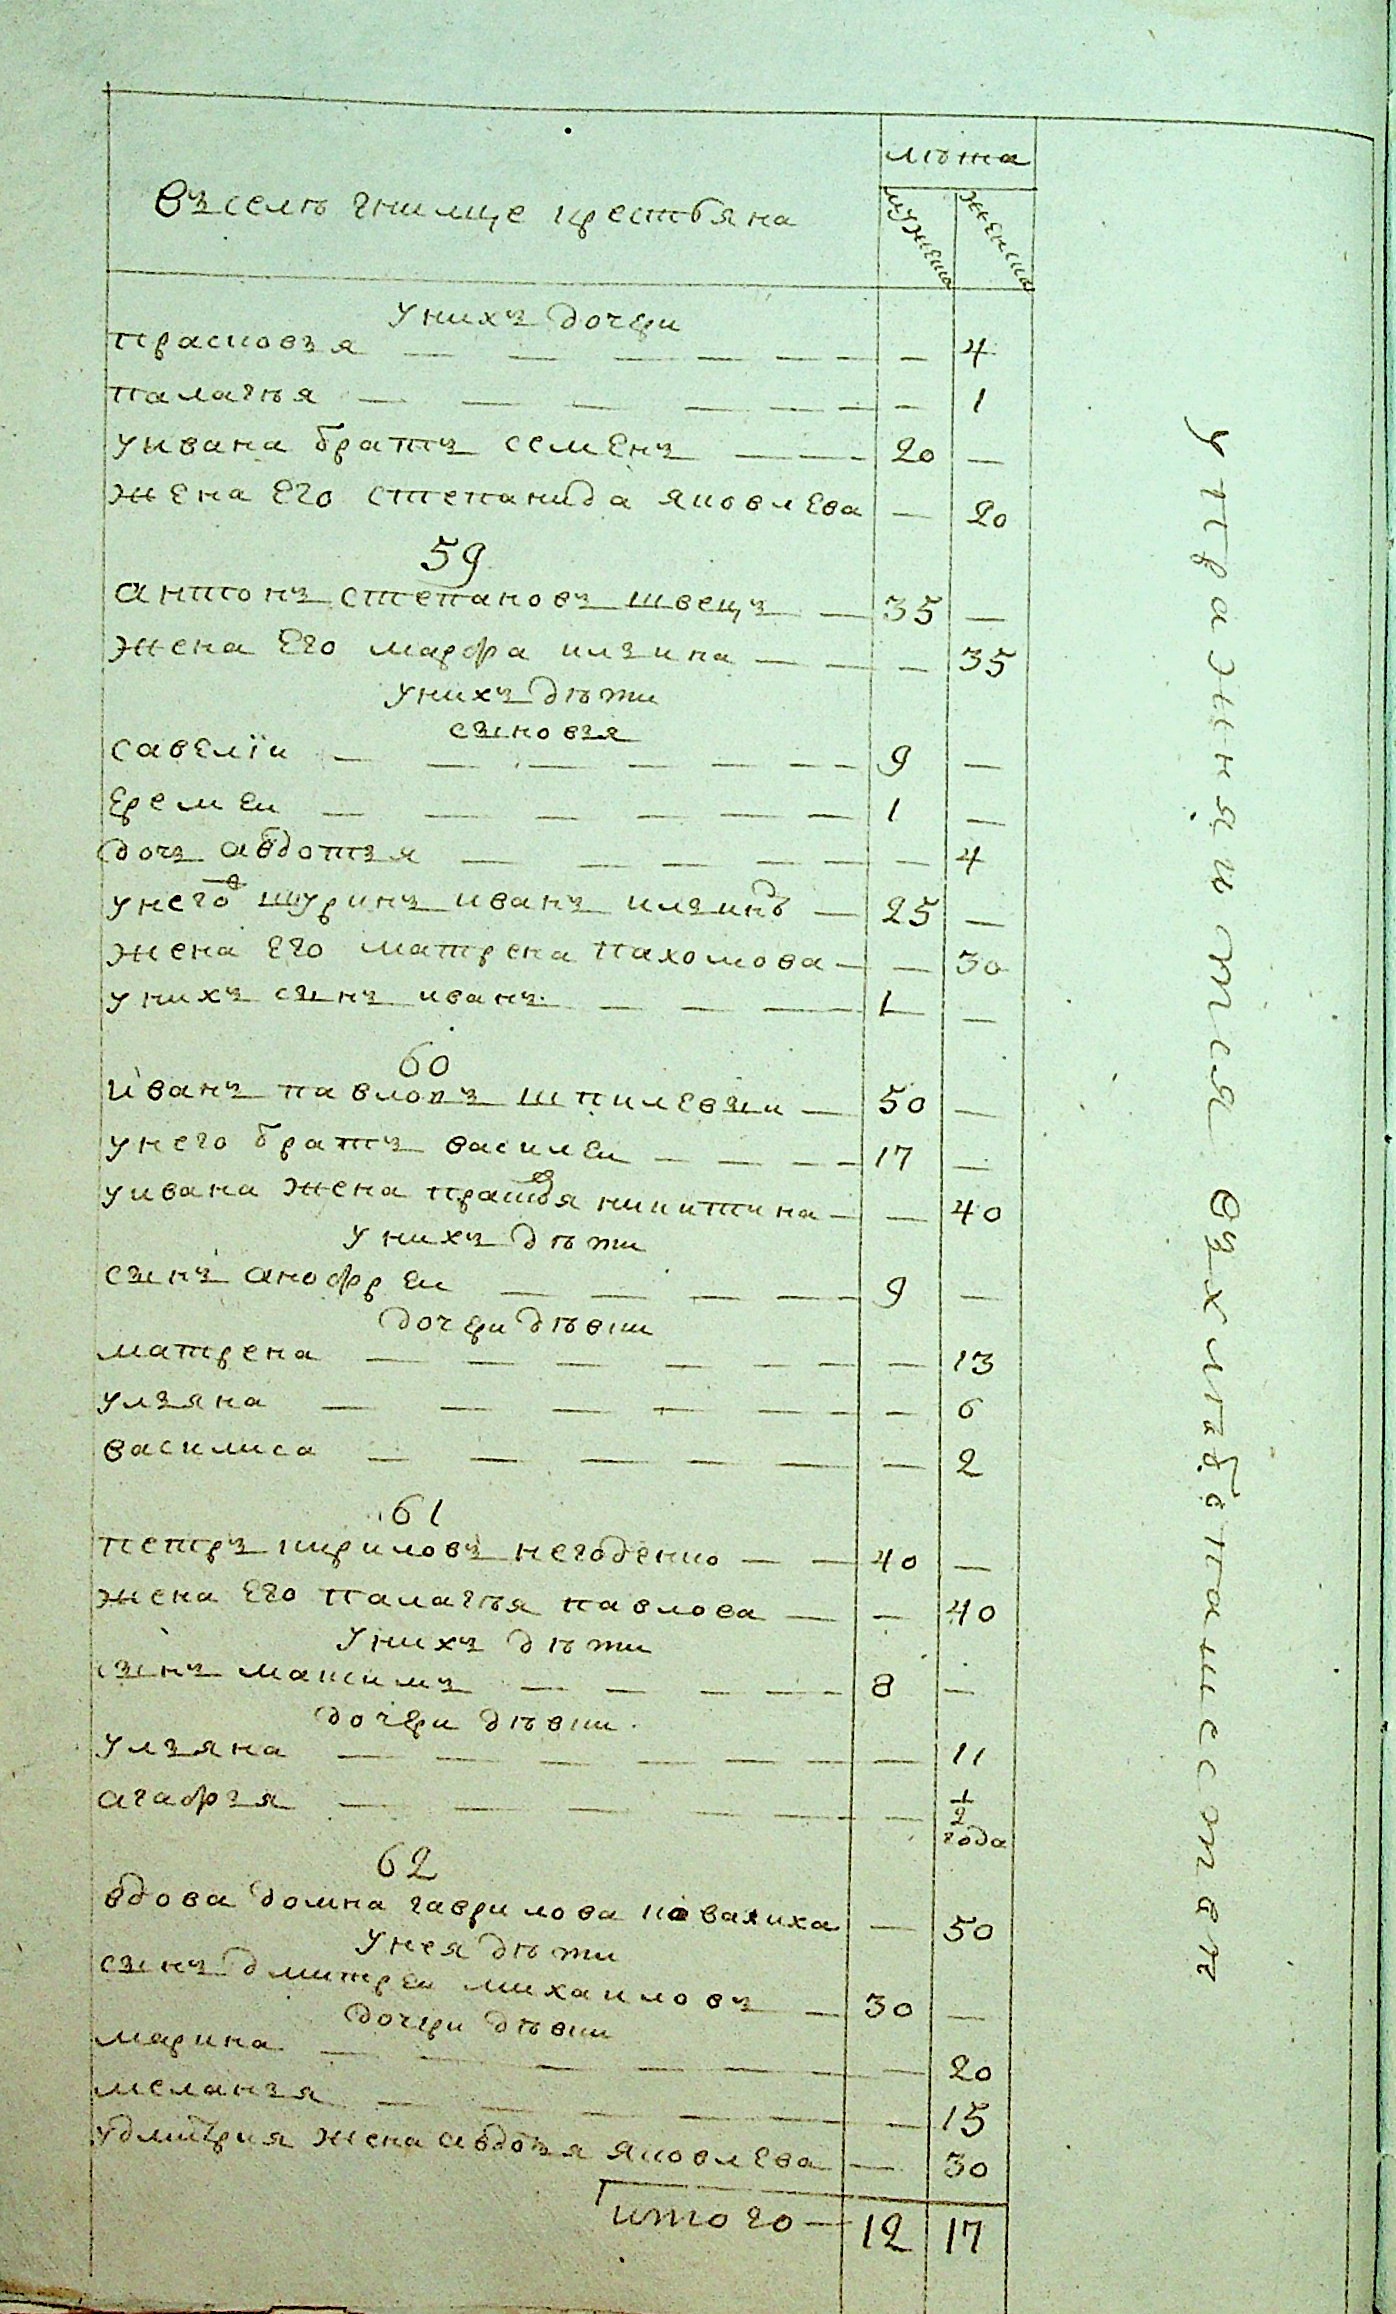 лѣта
въ селѣ гнилице крестьяна
мужеска
женска
у нихъ дочери
прасковья — 4
палагѣя — 1
у ивана братъ семенъ 20 —
жена его степанида яковлева — 20
59
антонъ степановъ швецъ 35 —
жена его марфа ильина — 35
у нихъ дѣти
сыновья
савелїи 9 —
еремеи 1 —
дочь авдотья — 4
у него шуринъ иванъ ильинъ 25 —
жена его матрена пахомова — 30
у нихъ сынъ иванъ 1 —
60
иванъ павловъ шпилевыи 50 —
у него братъ василеи 17 —
у ивана жена прасковя никитина — 40
у нихъ дѣти
сынъ анофреи 9 —
дочери дѣвки
матрена — 13
ульяна — 6
василиса — 2
61
петръ кириловъ негоденко 40 —
жена его палагѣя павлова — 40
у нихъ дѣти
сынъ максимъ 8 —
дочери дѣвки
ульяна — 11
агафья — 1/2 года
62
вдова домна гаврилова ковалиха — 50
у нея дѣти
сынъ дмитреи михаиловъ 30 —
дочери дѣвки
марина — 20
меланья — 15
у дмитрия жена авдотья яковлева — 30
итого 12 17
упражняится въ хлебопашествѣ